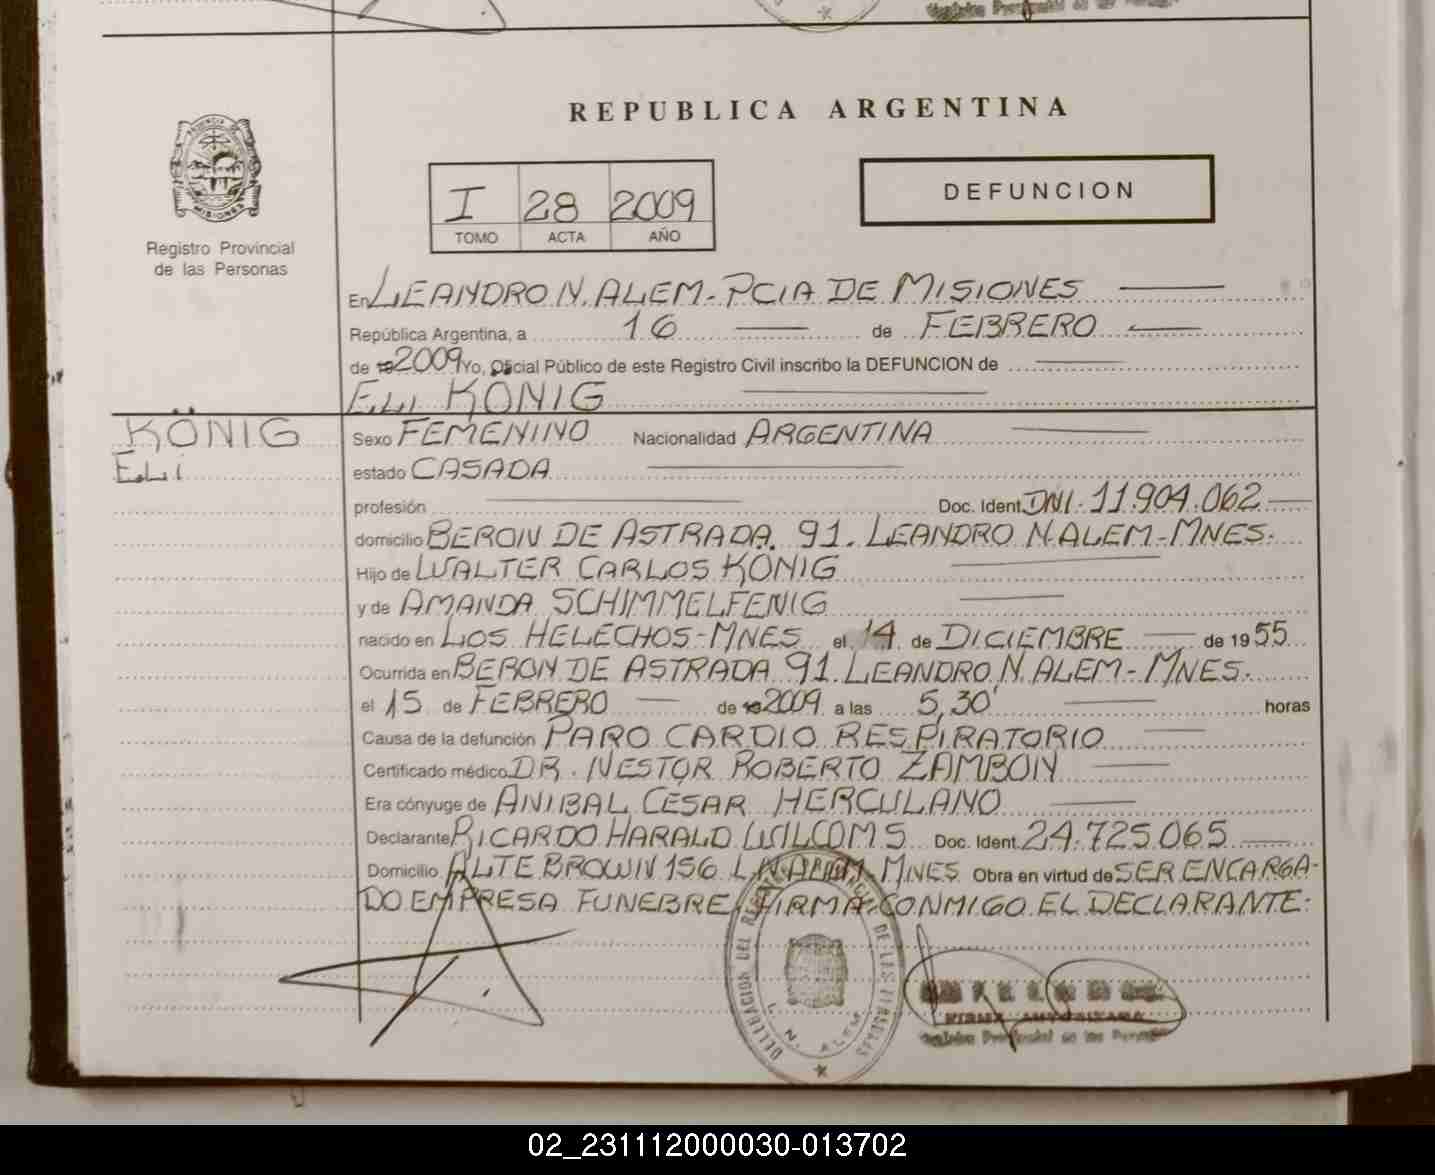 REPUBLICA ARGENTINA
PROVINCIA DE MISIONES
Registro Provincial
de las Personas
I 28 2009
TOMO ACTA AÑO
DEFUNCION
En LEANDRO N. ALEM - PCIA DE MISIONES
República Argentina, a 16 de FEBRERO
de 2009 Yo, Oficial Público de este Registro Civil inscribo la DEFUNCION de
ELI KÖNIG
KÖNIG
ELI
Sexo FEMENINO Nacionalidad ARGENTINA
estado CASADA
profesión Doc. Ident. DNI. 11.904.062
domicilio BERON DE ASTRADA. 91. LEANDRO N. ALEM - MNES.
Hijo de WALTER CARLOS KÖNIG
y de AMANDA SCHIMMELFENIG
nacido en LOS HELECHOS - MNES el 14 de DICIEMBRE de 1955
Ocurrida en BERON DE ASTRADA 91. LEANDRO N. ALEM - MNES.
el 15 de FEBRERO de 2009 a las 5,30' horas
Causa de la defunción PARO CARDIO RESPIRATORIO
Certificado médico DR. NESTOR ROBERTO ZAMBON
Era cónyuge de ANIBAL CESAR HERCULANO
Declarante RICARDO HARALD WILCOMS Doc. Ident. 24.725.065
Domicilio ALTE BROWN 156 L.N. ALEM - MNES Obra en virtud de SER ENCARGA-
DO EMPRESA FUNEBRE, FIRMA CONMIGO EL DECLARANTE.
DELEGACION DEL REGISTRO PROVINCIAL DE LAS PERSONAS
L. N. ALEM
FIRMA AUTORIZADA
Registro Provincial de las Personas
02_231112000030-013702